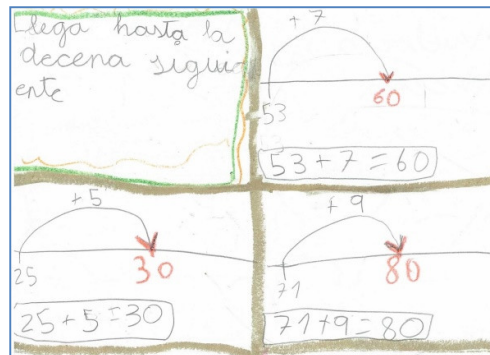 Llega hasta la
decena sigui-
ente
+ 7
53
60
53 + 7 = 60
+5
25
30
25 + 5 = 30
+ 9
71
80
71 + 9 = 80